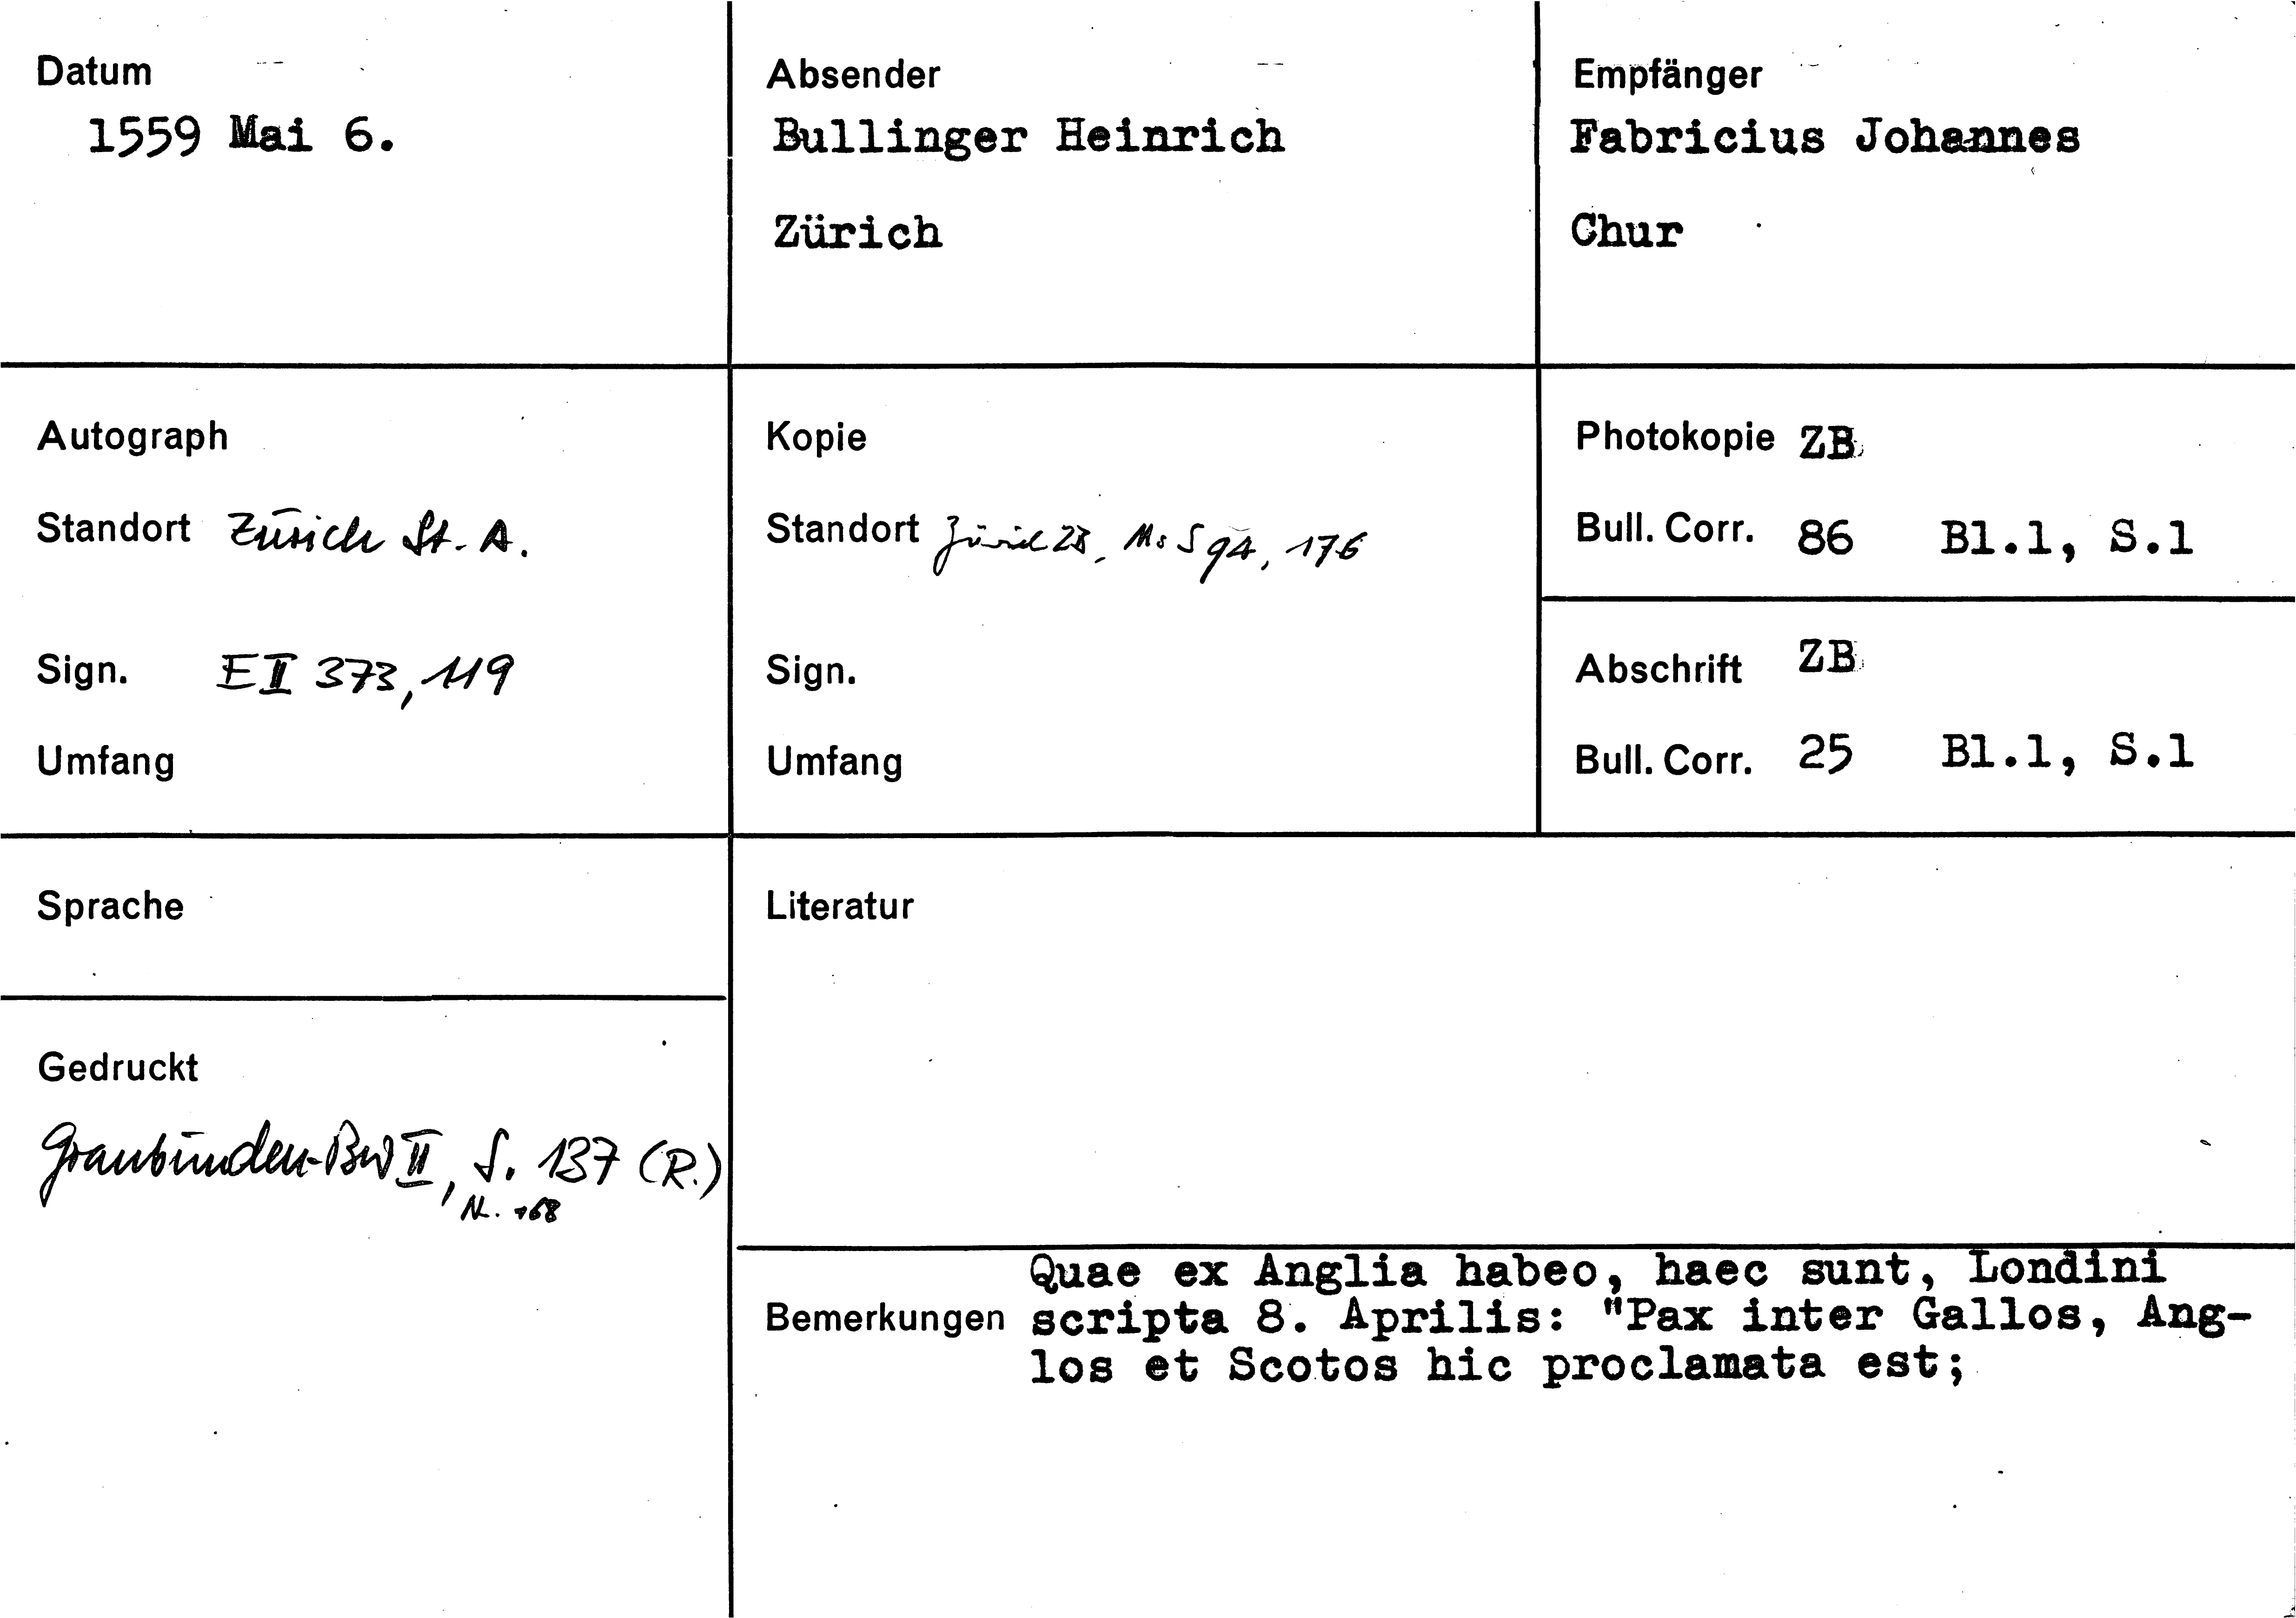 Datum
1559 Mai 6.
Absender
Bullinger Heinrich
Zürich
Empfänger
Fabricius Johannes
Chur
Autograph
Standort Zürich St. A.
Sign. E II 373, 119
Umfang
Kopie
Standort Zürich ZB, Ms S 94, 176
Sign.
Umfang
Photokopie ZB
Bull. Corr. 86 Bl.1, S.1
Abschrift ZB
Bull. Corr. 25 Bl.1, S.1
Sprache
Gedruckt
Graubünden-BW II, S. 137 (R.)
Nr. 168
Literatur
Quae ex Anglia habeo, haec sunt, Londini
Bemerkungen scripta 8. Aprilis: "Pax inter Gallos, Ang-
los et Scotos hic proclamata est;